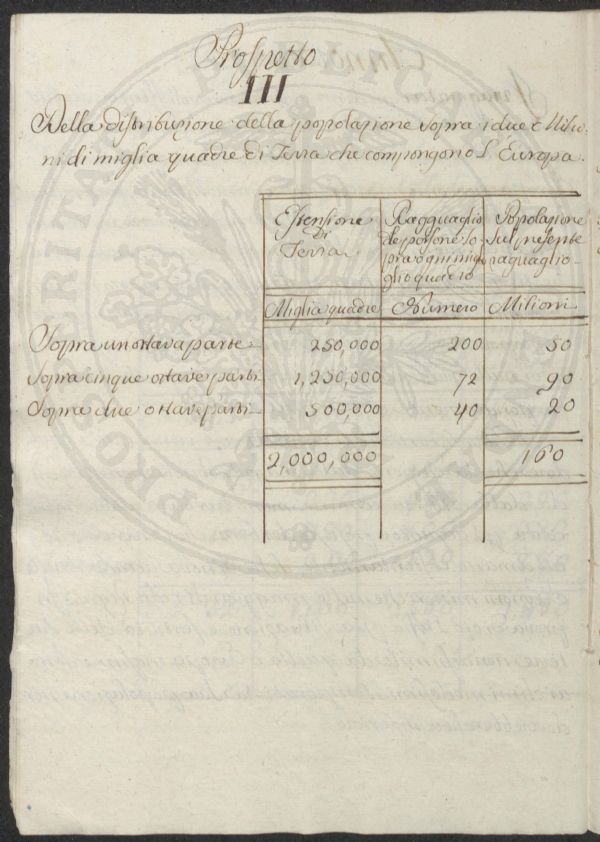 Prospetto
III
Della distribuzione della popolazione sopra i due Milio-
ni di miglia quadre di Terra che compongono L'Europa.
Estensione Ragguaglio Popolazione
Di delle persone so- sul presente
Terra pra ogni mi- raguaglio
glio quadro
Miglia quadre Numero Milioni
Sopra un ottava parte 250,000 200 50
Sopra cinque ottave parti 1,250,000 72 90
Sopra due ottave parti 500,000 40 20
2,000,000 160